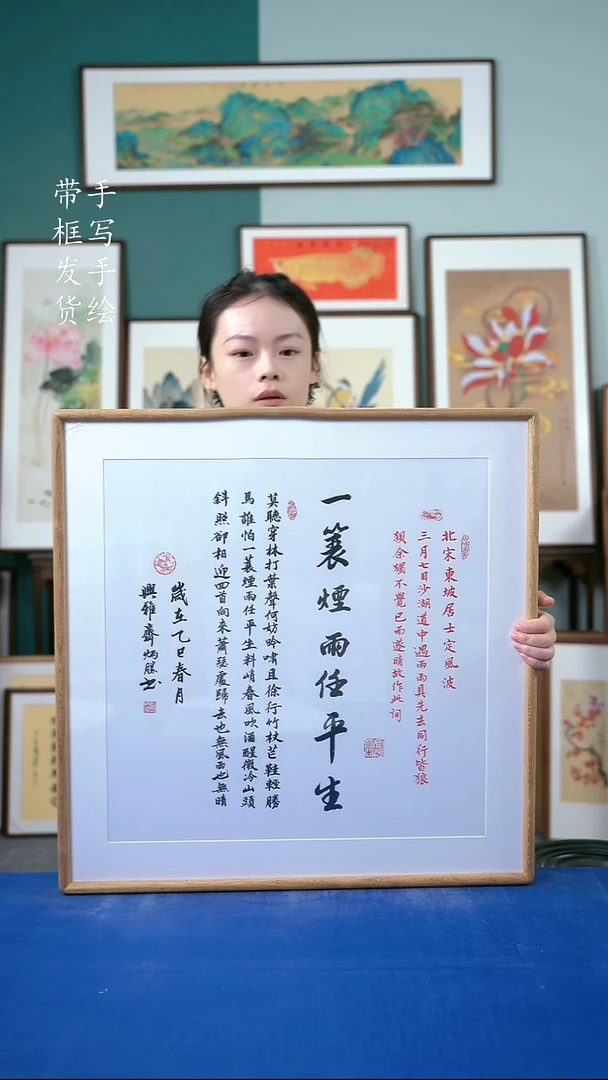 手写手绘
带框发货
北宋東坡居士定風波
三月七日沙湖道中遇雨雨具先去同行皆狼
狽余獨不覺已而遂晴故作此詞
一蓑煙雨任平生
莫聽穿林打葉聲何妨吟嘯且徐行竹杖芒鞋輕勝
馬誰怕一蓑煙雨任平生料峭春風吹酒醒微冷山頭
斜照卻相迎回首向來蕭瑟處歸去也無風雨也無晴
歲在乙巳春月
興雅齋炳胜书